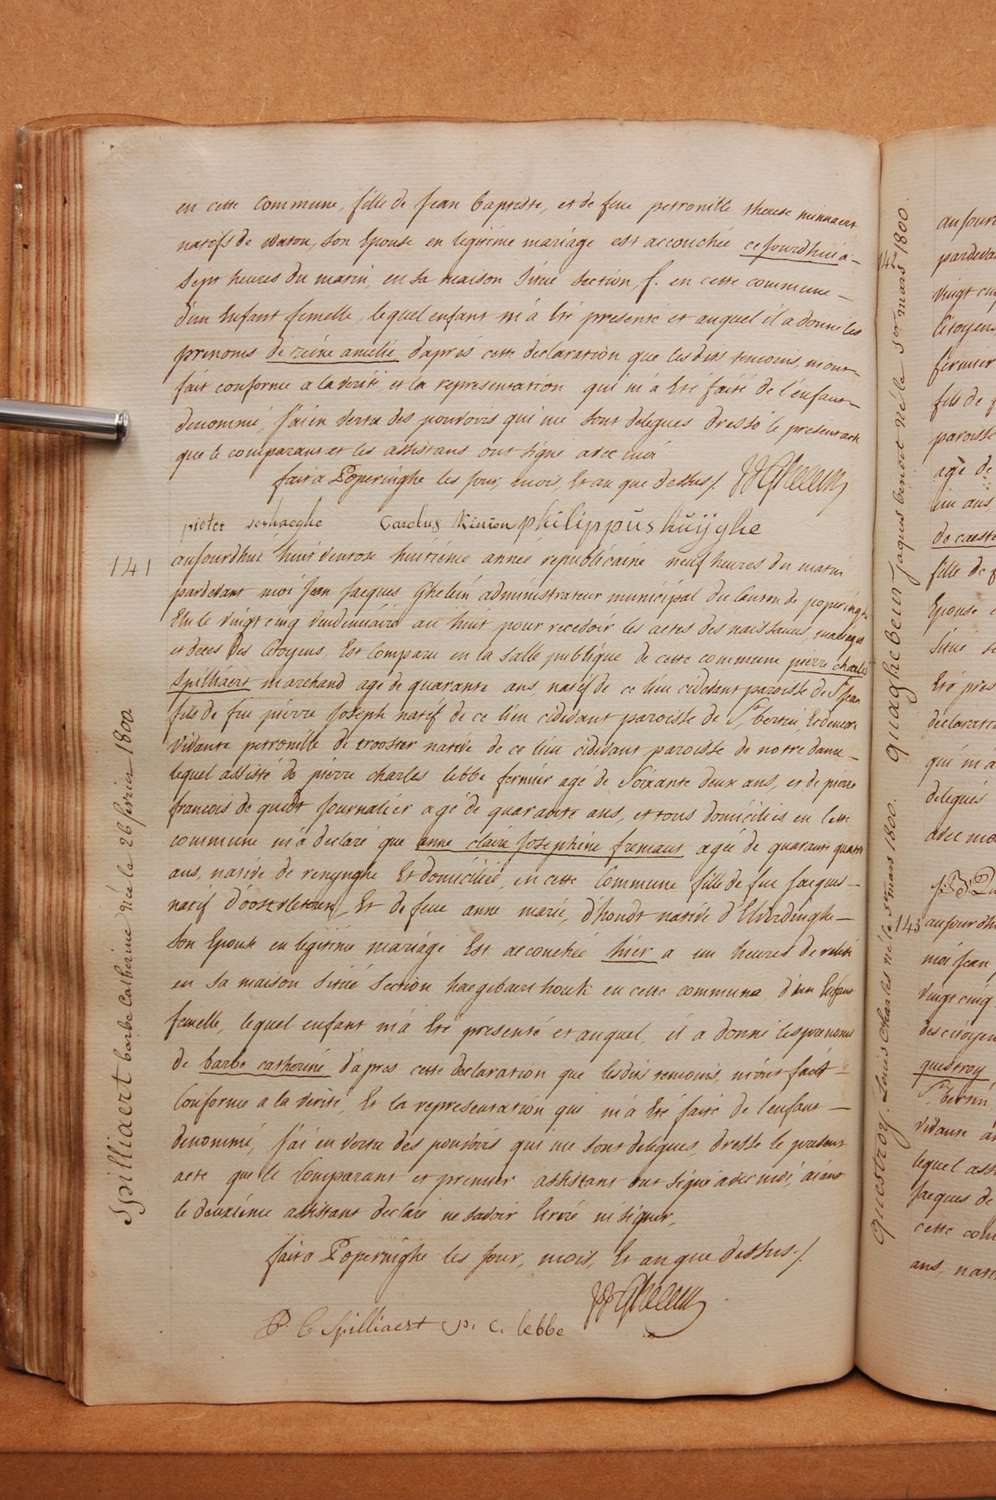 en cette Commune, fille de Jean baptiste, et de feue petronille therese minnaert
natifs de Watou, son Epouse en legitime mariage est accouchée ce jourdhui a
sept heures du matin, en sa maison situé section, f. en cette commune
d'un Enfant femelle, lequel enfant m'a été presenté et auquel il a donné les
prenoms de reine amelie d'aprés cette declaration que les dits temoins, m'ont
fait conforme a la verité et la representation qui m'a été faite de l'enfant
denommé, J'ai en vertu des pouvoirs qui me sont delegues dressé le present acte
que le comparant et les assistans ont signé avec moi
fait a Poperinghe les jour, mois, Et an que dessus /. JJ Ghelein
pieter Carolus Minion philippus huÿghe
141
aujourdhui huit ventose huitieme année republicaine neuf heures du matin
pardevant moi Jean Jacques Ghelein administrateur municipal du Canton de poperinghe
Elu le vingt cinq vendemiaire an huit pour recevoir les actes des naissances mariages
et deces des Citoyens, Est Comparu en la salle publique de cette commune pierre charles
Spilliaert marchand agé de quarante ans natif de ce lieu cidevant paroisse de St Jean
fils de feu pierre Joseph natif de ce lieu cidevant paroisse de St bertin, Et demeure
Vidante petronille de trooster native de ce lieu cidevant paroisse de notre dame
lequel assisté de pierre charles lebbe fermier agé de Soixante deux ans, et de pierre
francois de quidt Journalier agé de quarante ans, et tous domicilies en Cette
commune m'a declaré que anne claire Josephine fremaut agée de quarante quatre
ans, native de renynghe Et domiciliée, en cette Commune fille de feu Jacques
natif d'oostvleteren, Et de feue anne marie, d'hondt native d'Elverdinghe
son Epouse en legitime mariage Est accouchée hier a un heures de relevé
en sa maison situé Section haeghebaert houck en cette commune d'un Enfant
femelle, lequel enfant m'a Eté presenté et auquel, il a donné les prenoms
de barbe catherine d'apres cette declaration que les dits temoins, m'ont fait
Conforme a la verité, Et la representation qui m'a Eté faite de l'enfant
denommé, J'ai en vertu des pouvoirs qui me sont delegues, dressé le present
acte que le Comparant et premier assistant ont signé avec moi, aiant
le deuxième assistant declaré ne savoir Ecrire ni signer,
fait a Poperinghe les Jour, mois, Et an que dessus /.
JJ Ghelein
P. C Spilliaert p. c. lebbe
Spilliaert barbe Catherine née le 26 fevrier 1800
Quaghebeur Jaques benoit né le 5er mars 1800.
Questroy Louis Charles né le 5er mars 1800.
aujourd
pardevant
vingt cinq
Citoyens
fermier
fils de
paroisse
agé de
un ans,
de caeste
fille de
Epouse
située
Eté pres
declaration
qui m'a
delegués
avec moi
143 aujourdhui
moi Jean
vingt cinq
des citoyens
questroy
St bertin
Vidante
lequel ass
Jacques de
cette com
ans, nat